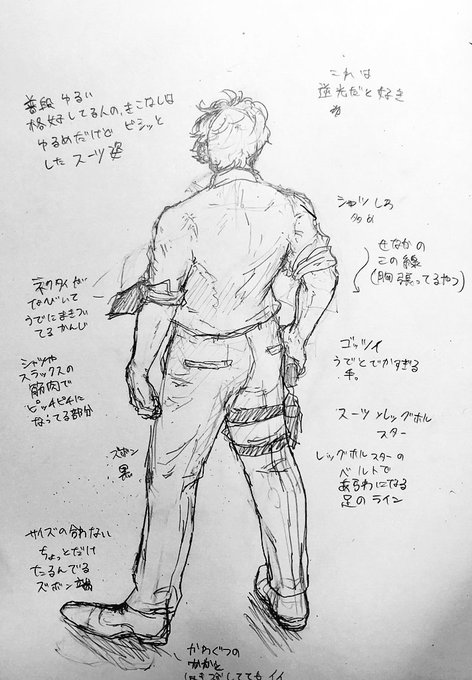 普段ゆるい
格好してる人の、きこなしは
ゆるめだけど ピシッと
した スーツ姿
これは
逆光だと好き
シャツ しわ
多め
せなかの
この線
(胸張ってるやつ)
ネクタイが
なびいて
うでにまきつい
てるかんじ
ゴッツイ
うでとでかすぎる
手。
シャツや
スラックスの
筋肉で
ピッチピチに
なってる部分
スーツ×レッグホル
スター
レッグホルスターの
ベルトで
あらわになる
足のライン
ズボン
黒
サイズの合わない
ちょっとだけ
たるんでる
ズボン
かわぐつの
かかと